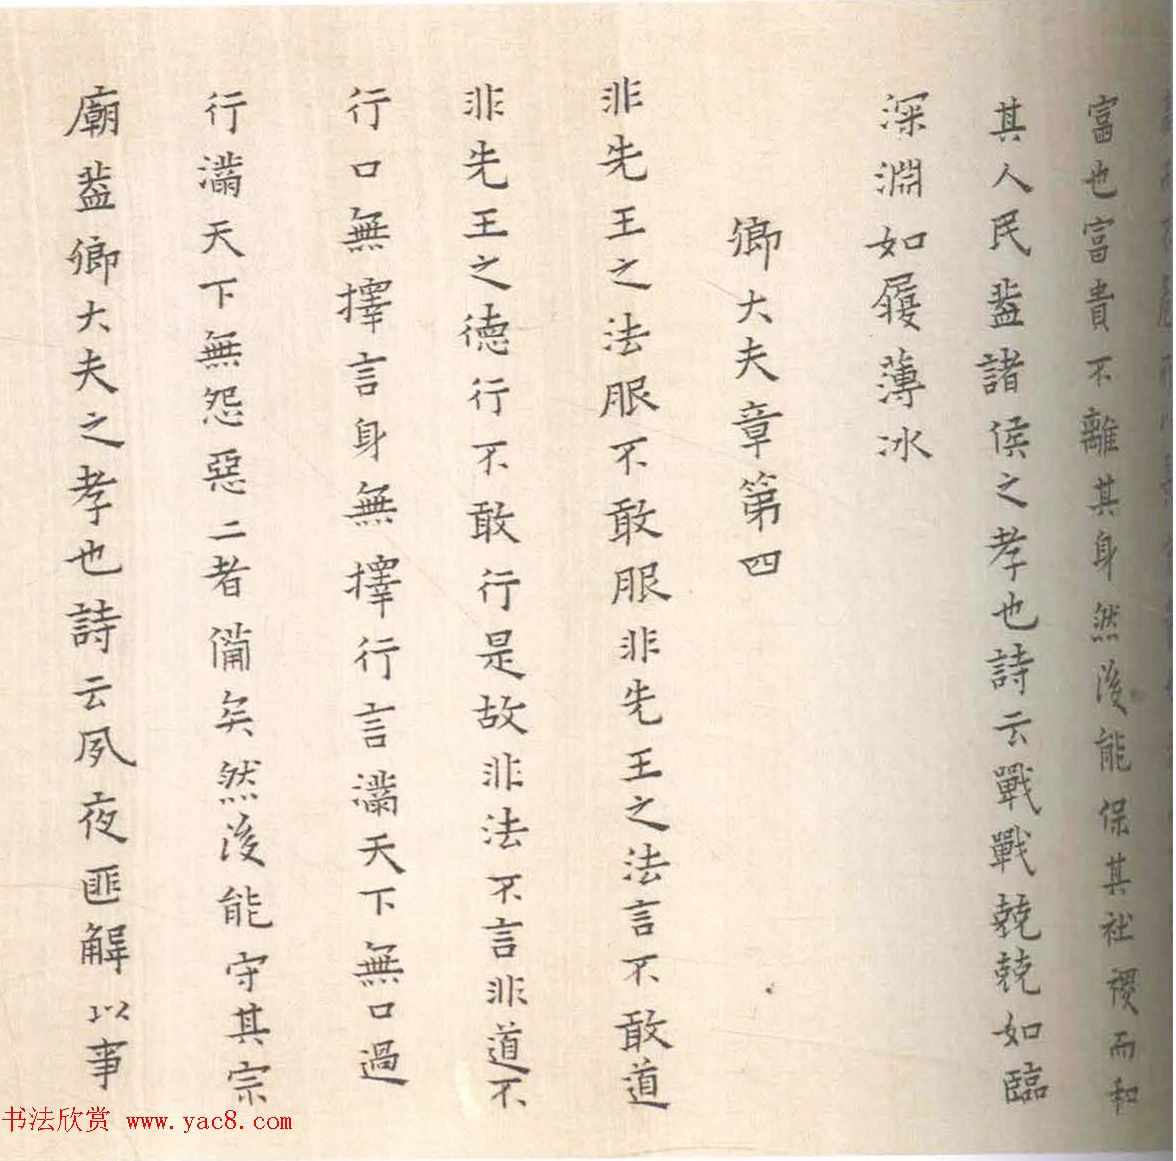 富也富貴不離其身然後能保其社稷而和
其人民蓋諸侯之孝也詩云戰戰兢兢如臨
深淵如履薄冰
卿大夫章第四
非先王之法服不敢服非先王之法言不敢道
非先王之德行不敢行是故非法不言非道不
行口無擇言身無擇行言滿天下無口過
行滿天下無怨惡二者備矣然後能守其宗
廟蓋卿大夫之孝也詩云夙夜匪解以事
书法欣赏 www.yac8.com